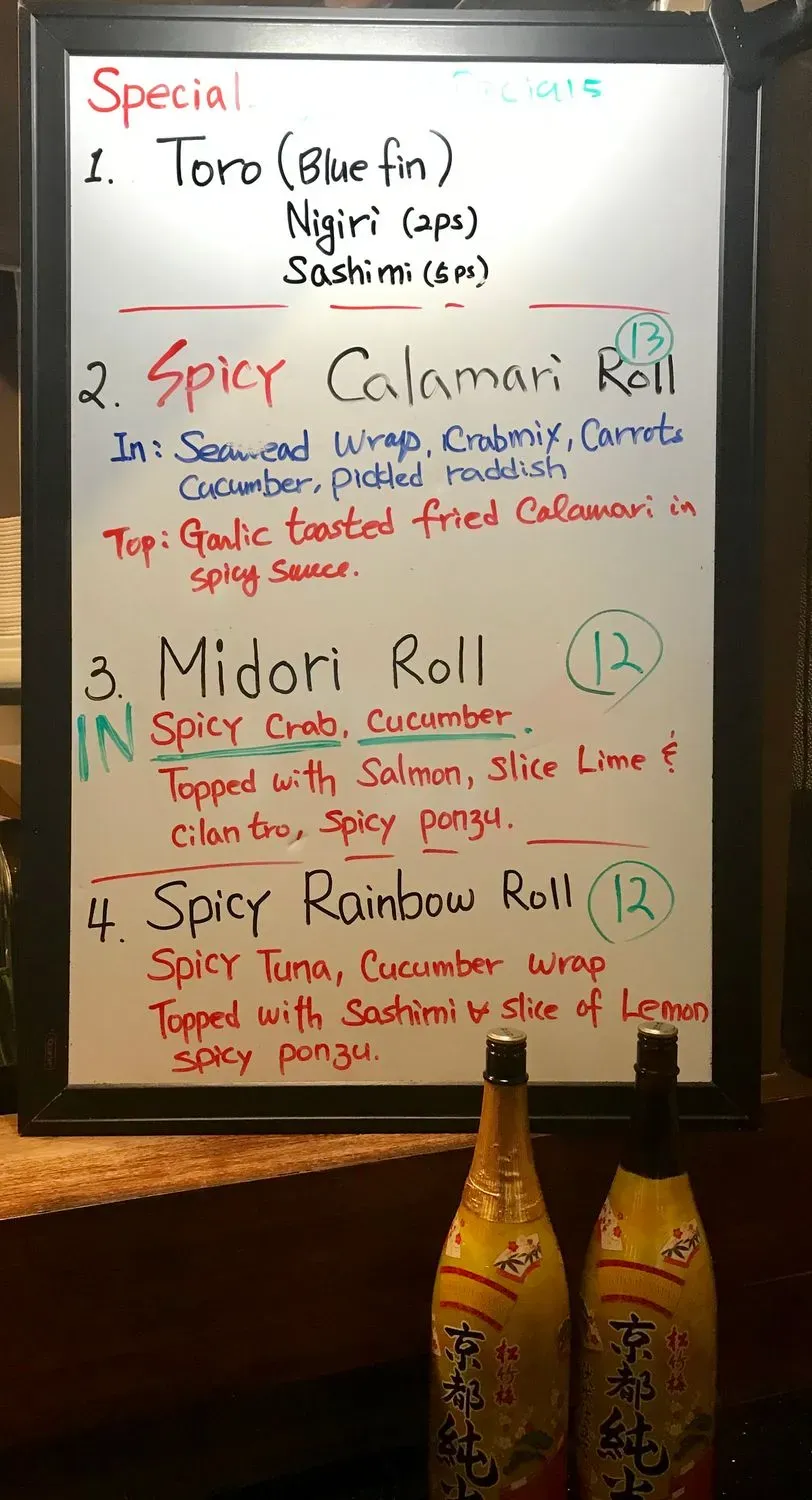 Special
1. Toro (Blue fin)
Nigiri (2ps)
Sashimi (5ps)
2. Spicy Calamari Roll 13
In: Seawead Wrap, Crabmix, Carrots
Cucumber, pickled raddish
Top: Garlic toasted fried Calamari in
spicy sauce.
3. Midori Roll 12
IN Spicy Crab, Cucumber.
Topped with Salmon, Slice Lime &
cilantro, Spicy ponzu.
4. Spicy Rainbow Roll 12
Spicy Tuna, Cucumber wrap
Topped with Sashimi & slice of Lemon
spicy ponzu.
松竹梅
京都純米
松竹梅
京都純米